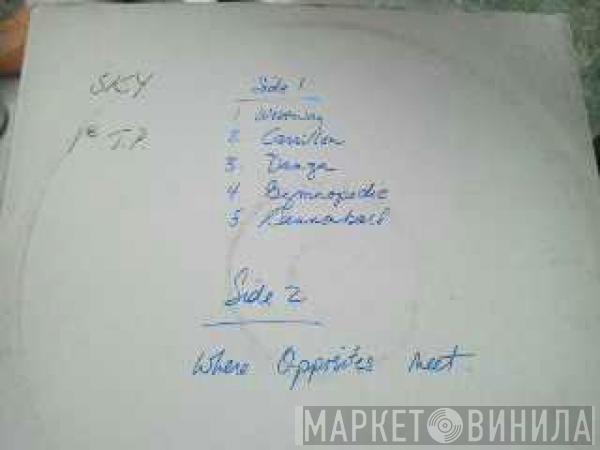 SKY
1e T.P.
Side 1
1 Westway
2 Carrillon
3 Danza
4 Gymnopedie
5 Cannonball
Side 2
Where Opposites Meet
МАРКЕТ ВИНИЛА